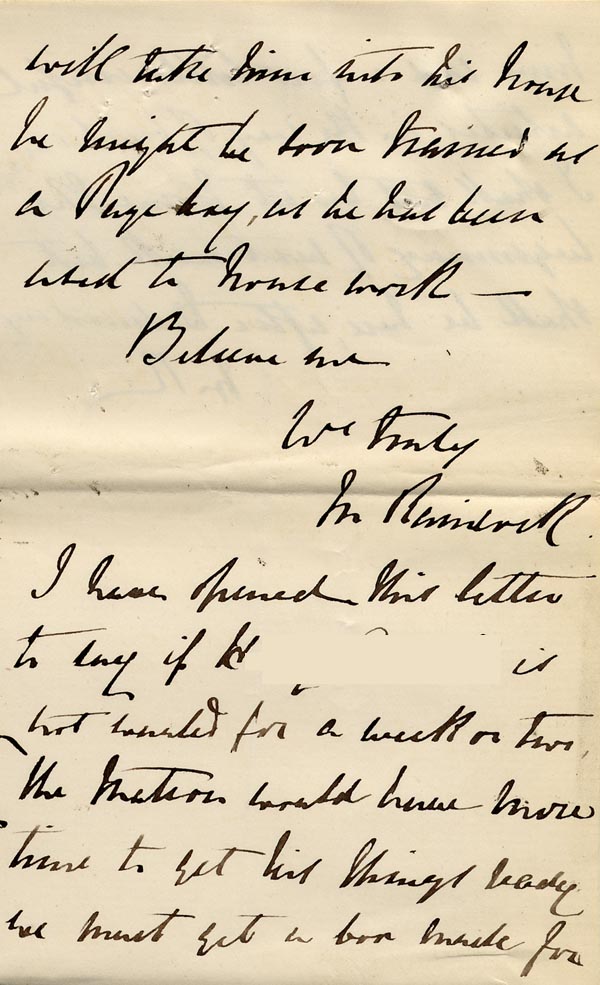 will take him into his house
he might be soon trained as
a Page boy, as he has been
used to house work —
Believe me
Yrs truly
M
I have opened this letter
to say if H is
not wanted for a week or two,
the Matron would have more
time to get his things ready
we must get a box made for